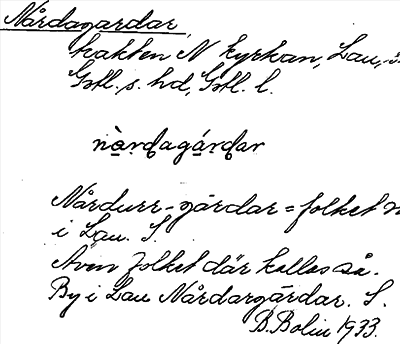 Nårdagardar,
trakten N kyrkan, Lau,
Gotl. s. hd, Gotl. l.
nàrdagárdar
Nårdurr-gardar = folket
i Lau. S.
Även folket där kallas så.
By i Lau Nårdargardar. S.
B. Bolin 1933.